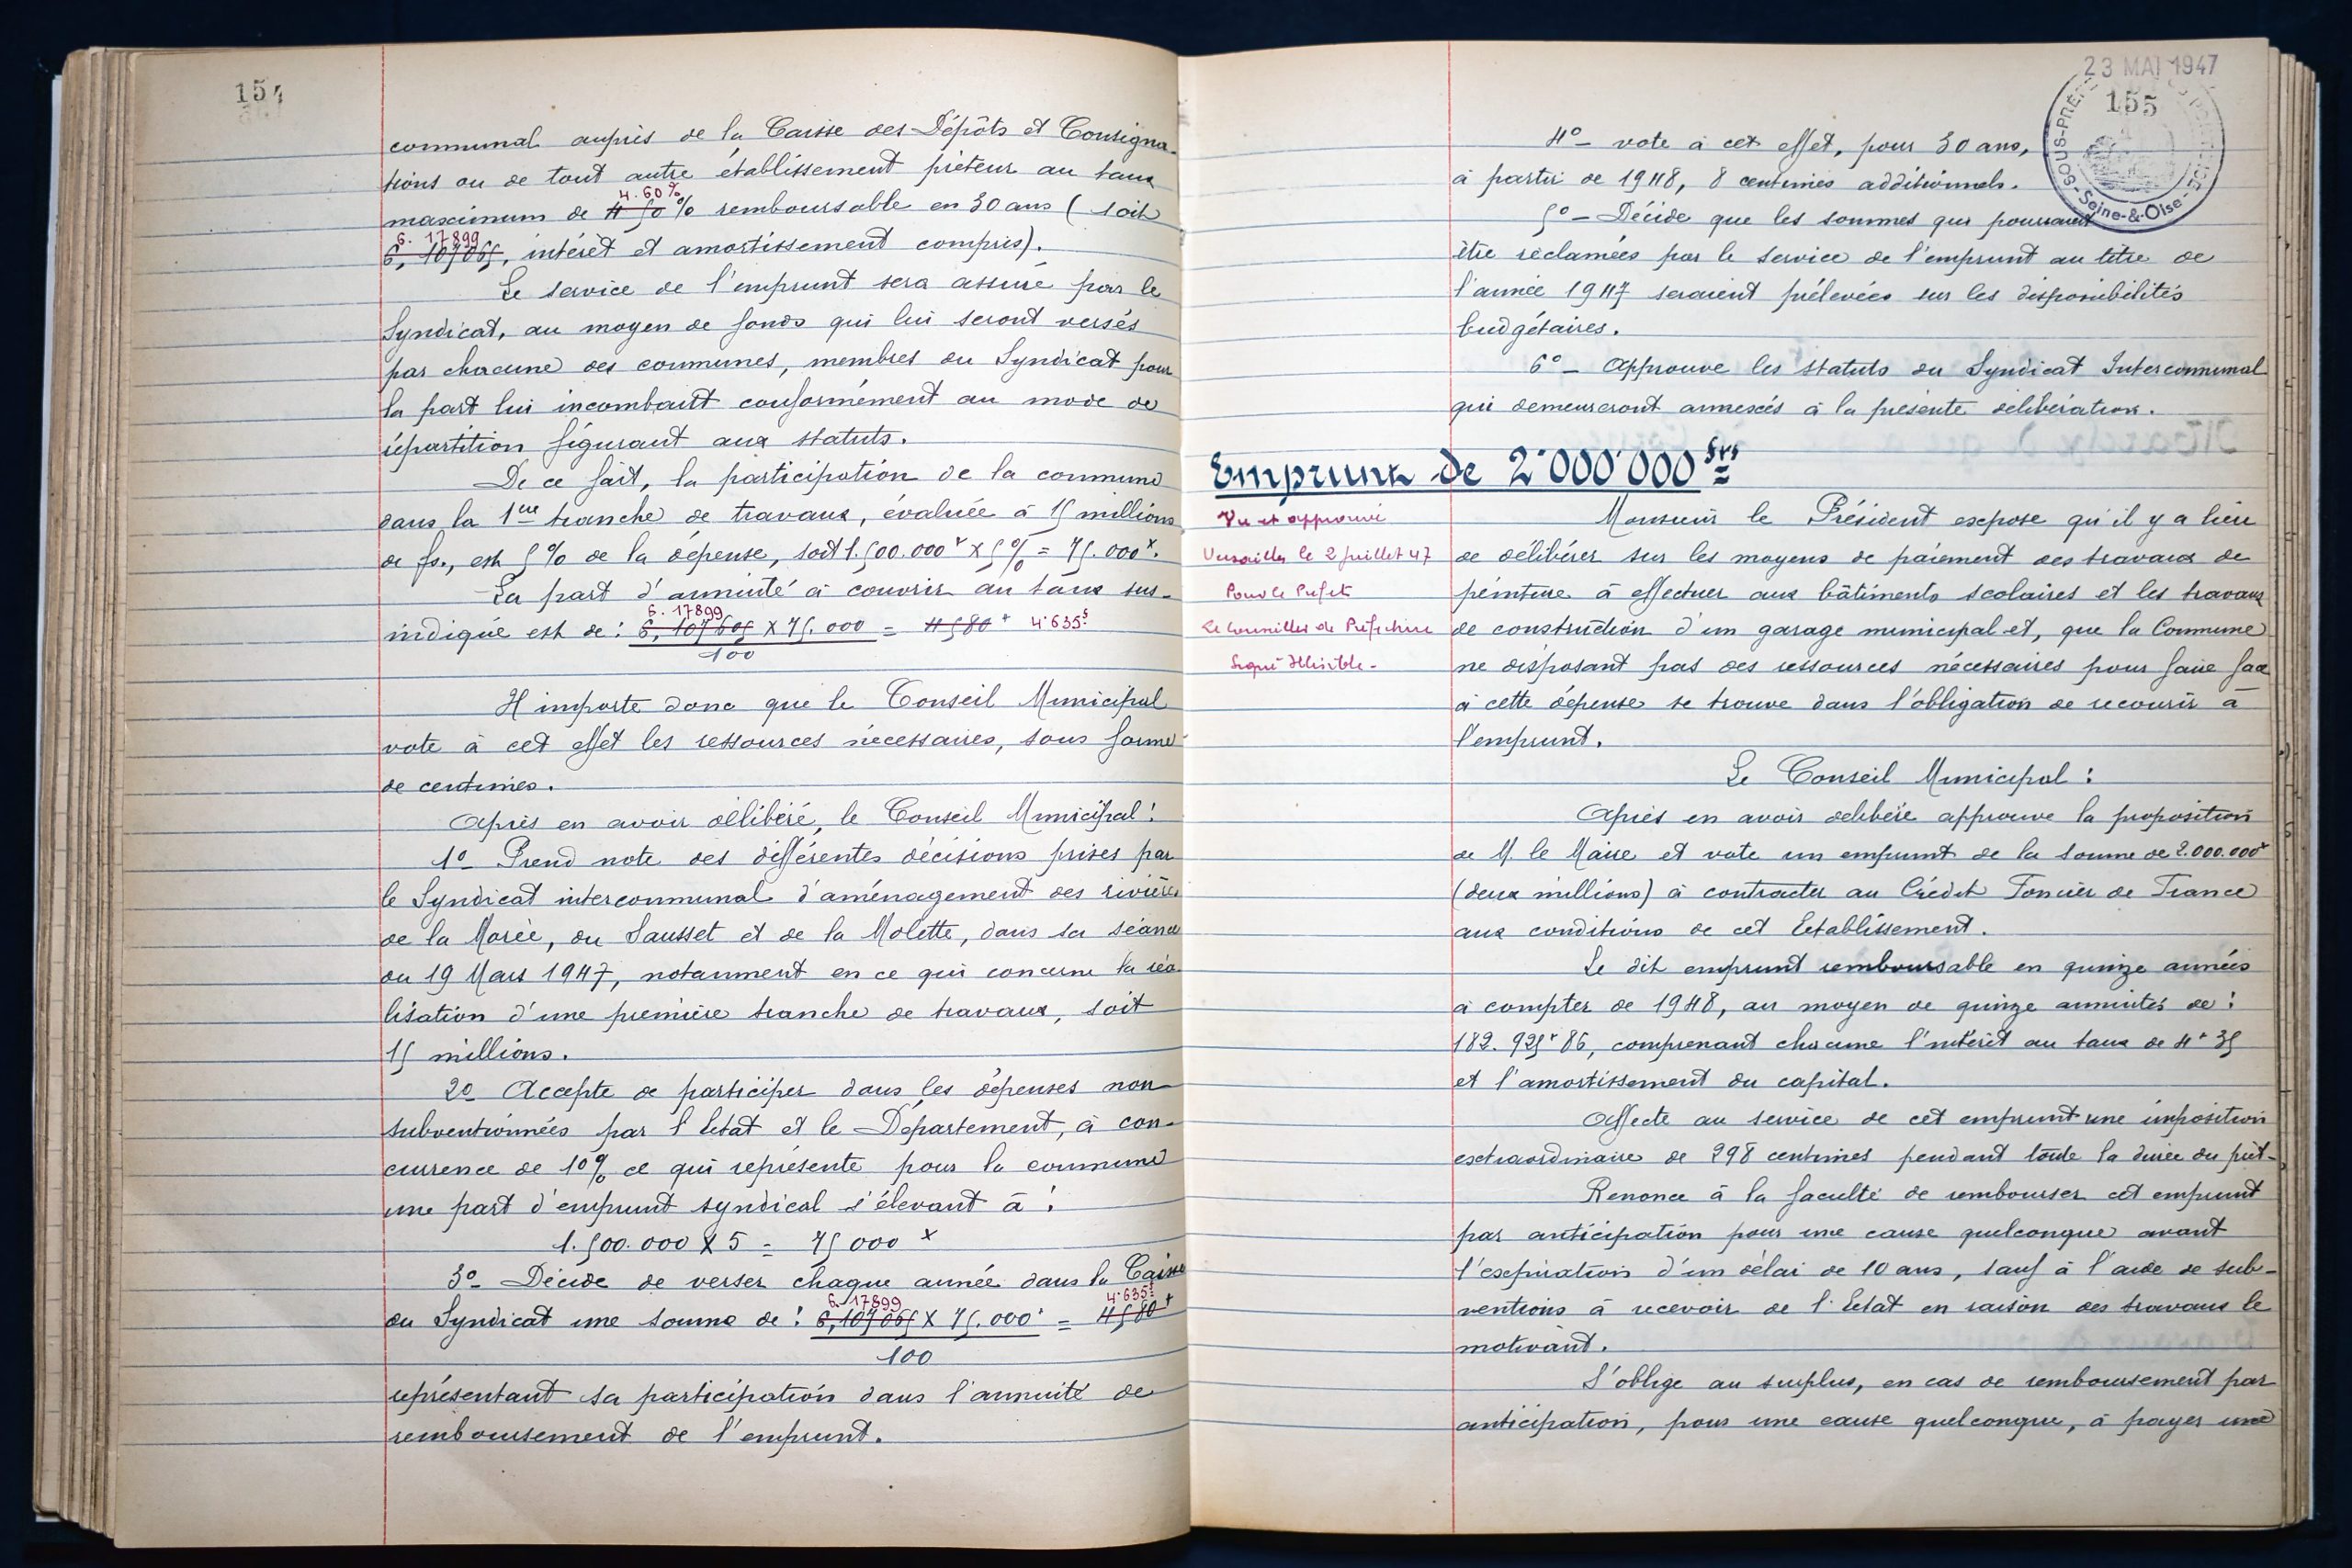 154
communal auprès de la Caisse des Dépôts et Consigna-
tions ou de tout autre établissement prêteur au taux
4.60 %
maximum de 4 50 % remboursable en 30 ans (soit
6. 17899
6, 107065, intérêt et amortissement compris).
Le service de l'emprunt sera assuré par le
Syndicat, au moyen de fonds qui lui seront versés
par chacune des communes, membres du Syndicat pour
la part lui incombant conformément au mode de
répartition figurant aux statuts.
De ce fait, la participation de la commune
dans la 1ère tranche de travaux, évaluée à 15 millions
de fs., est 5% de la dépense, soit 1.500.000 x 5% = 75.000
La part d'annuité à couvrir au taux sus-
6. 17899
indiqué est de : 6, 107605 x 75.000 = 4580 4.635
100
Il importe donc que le Conseil Municipal
vote à cet effet les ressources nécessaires, sous forme
de centimes.
Après en avoir délibéré, le Conseil Municipal :
1º- Prend note des différentes décisions prises par
le Syndicat intercommunal d'aménagement des rivières
de la Morée, du Sausset et de la Molette, dans sa séance
du 19 Mars 1947, notamment en ce qui concerne la réa-
lisation d'une première tranche de travaux, soit
15 millions.
2º- Accepte de participer dans les dépenses non
subventionnées par l'Etat et le Département, à con-
currence de 10% ce qui représente pour la commune
une part d'emprunt syndical s'élevant à :
1.500.000 x 5 = 75000
3º- Décide de verser chaque année dans la Caisse
6. 17899 4.635
du Syndicat une somme de : 6,107065 x 75.000 = 4580
100
représentant sa participation dans l'annuité de
remboursement de l'emprunt.
23 MAI 1947
155
SOUS-PRÉFECTURE DE PONTOISE
Seine-&-Oise
4º- vote à cet effet, pour 30 ans,
à partir de 1948, 8 centimes additionnels.
5º- Décide que les sommes qui pourraient
être réclamées par le service de l'emprunt au titre de
l'année 1947 seraient prélevées sur les disponibilités
budgétaires.
6º- Approuve les statuts du Syndicat Intercommunal
qui demeureront annexés à la présente délibération.
Emprunt de 2.000.000 frs
Vu et approuvé
Versailles le 2 juillet 47
Pour le Préfet
Le Conseiller de Préfecture
Signé Illisible.-
Monsieur le Président expose qu'il y a lieu
de délibérer sur les moyens de paiement des travaux de
peinture à effectuer aux bâtiments scolaires et les travaux
de construction d'un garage municipal et, que la Commune
ne disposant pas des ressources nécessaires pour faire face
à cette dépense se trouve dans l'obligation de recourir à
l'emprunt.
Le Conseil Municipal :
Après en avoir délibéré approuve la proposition
de M. le Maire et vote un emprunt de la somme de 2.000.000
(deux millions) à contracter au Crédit Foncier de France
aux conditions de cet Etablissement.
Le dit emprunt remboursable en quinze années
à compter de 1948, au moyen de quinze annuités de :
182.925 86, comprenant chacune l'intérêt au taux de 4 35
et l'amortissement du capital.
Affecte au service de cet emprunt une imposition
extraordinaire de 298 centimes pendant toute la durée du prêt-
Renonce à la faculté de rembourser cet emprunt
par anticipation pour une cause quelconque avant
l'expiration d'un délai de 10 ans, sauf à l'aide de sub-
ventions à recevoir de l'Etat en raison des travaux le
motivant.
S'oblige au surplus, en cas de remboursement par
anticipation, pour une cause quelconque, à payer une